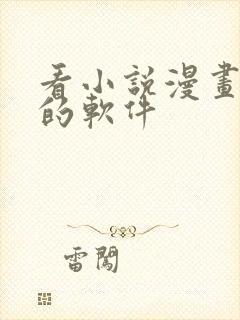 看小說漫畫
的軟件
雷闖